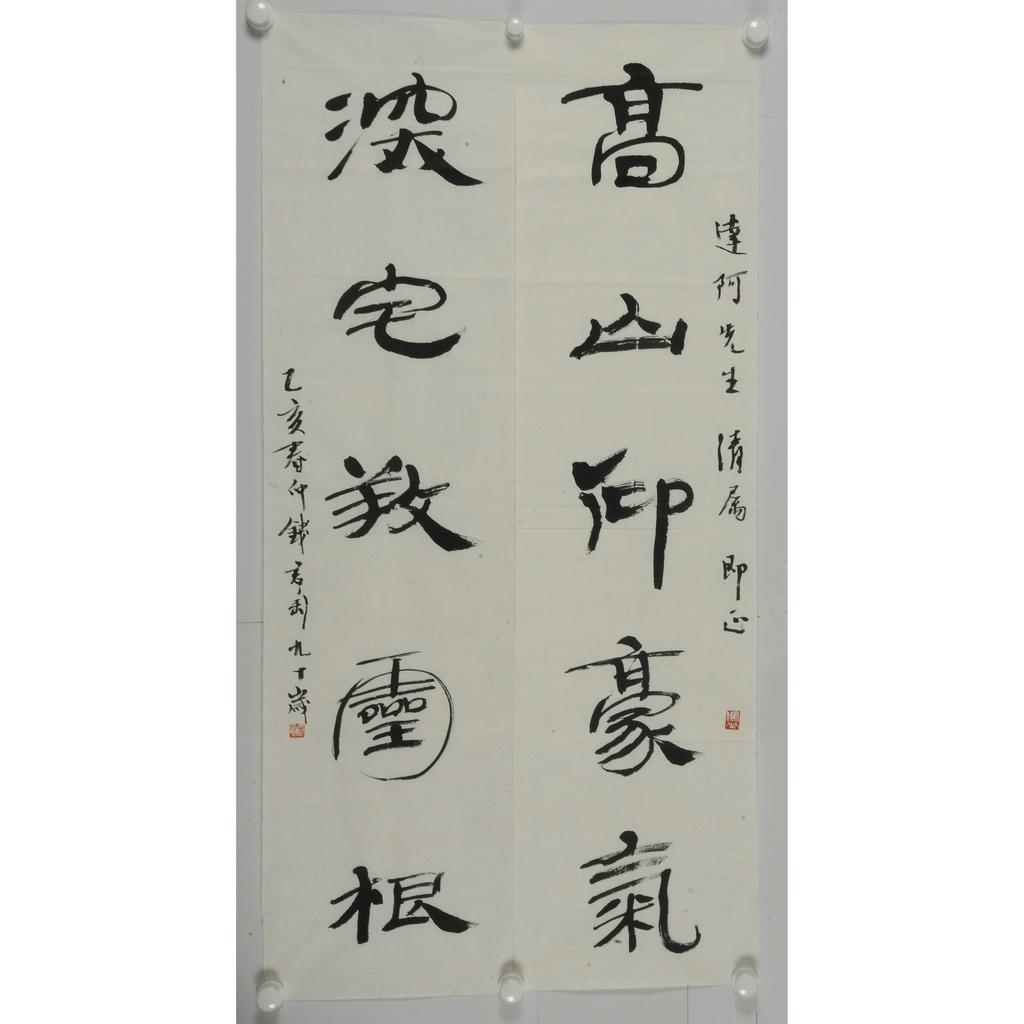 達阿先生 清属 即正
高山仰豪氣
深宅𢼝靈根
乙亥春仲錢君匋九十歲